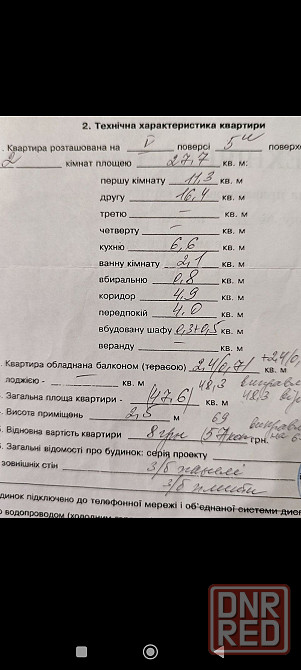 2. Технічна характеристика квартири
. Квартира розташована на V поверсі 5и поверхо
2 кімнат площею 27,7 кв. м:
першу кімнату 11,3 кв. м
другу 16,4 кв. м
третю – кв. м
четверту – кв. м
кухню 6,6 кв. м
ванну кімнату 2,1 кв. м
вбиральню 0,8 кв. м
коридор 4,9 кв. м
передпокій 4,0 кв. м
вбудовану шафу 0,3+0,5 кв. м
веранду – кв. м
. Квартира обладнана балконом (терасою) 2,4/0,7/
лоджією - – кв. м 48,3
. Загальна площа квартири - /47,6/ кв. м 48,3
. Висота приміщень 2,5 м 69
. Відновна вартість квартири 8 грн /57коп грн.
. Загальні відомості про будинок: серія проекту
зовнішніх стін з/б панелі
з/б плити
динок підключено до телефонної мережі і об'єднаної системи дис
о водопроводом (холодним
DNR
RED